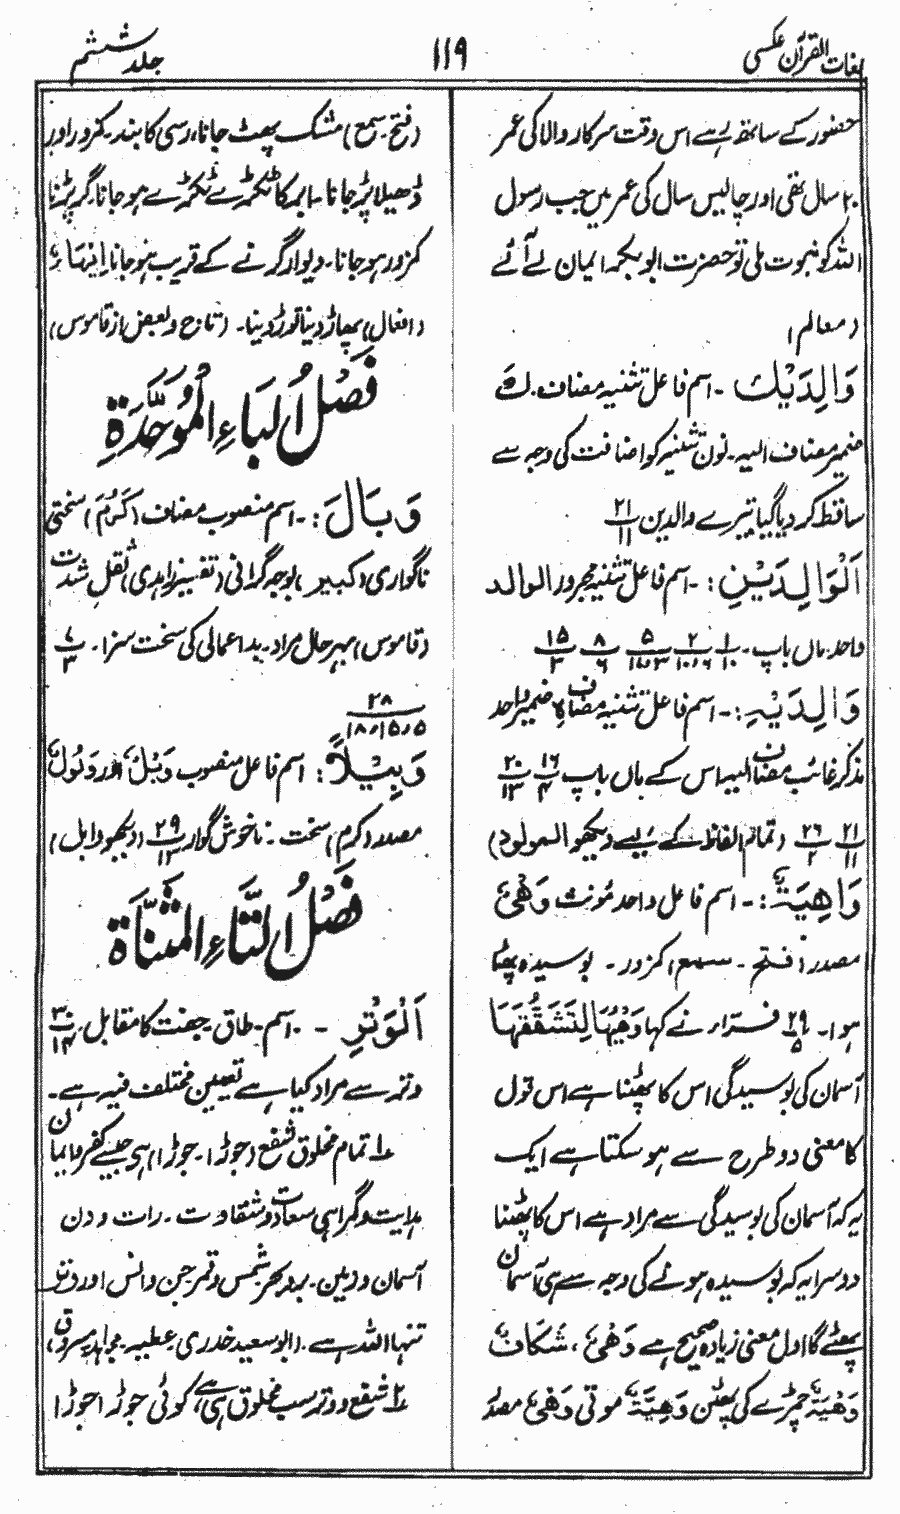 لغات القرآن عکسی ۱۱۹ جلد ششم
حضور کے ساتھ رہے اس وقت سرکار والا کی عمر
۲۰ سال تھی اور چالیس سال کی عمر میں جب رسول
اللہ کو نبوت ملی تو حضرت ابوبکرؓ ایمان لے آئے
(معالم)
وَالِدَیْكَ ۔ اسم فاعل تثنیہ مضاف۔ كَ
ضمیر مضاف الیہ۔ نون تثنیہ کو اضافت کی وجہ سے
ساقط کر دیا گیا تیرے والدین ۲۱/۱۱
اَلْوَالِدَیْنِ :۔ اسم فاعل تثنیہ مجرور الوالد
واحد۔ ماں باپ۔ ۱/۱۰ ۲/۶،۱۰ ۵/۳،۱۲ ۸/۶ ۱۵/۳
وَالِدَیْہِ :۔ اسم فاعل تثنیہ مضاف ہِ ضمیر واحد
مذکر غائب مضاف الیہ اس کے ماں باپ ۱۶/۴ ۲۰/۱۳
۲۱/۱۱ ۲۶/۲ (تمام الفاظ کے لیے دیکھو المولود)
وَاهِيَةٌ :۔ اسم فاعل واحد مؤنث وَهْيٌ
مصدر (فتح ۔ سمع) کمزور ۔ بوسیدہ پھٹا
ہوا۔ ۲۹/۵ فرّاء نے کہا وَهْيُهَا لِتَشَقُّقِهَا
آسمان کی بوسیدگی اس کا پھٹنا ہے اس قول
کا معنی دو طرح سے ہو سکتا ہے ایک
یہ کہ آسمان کی بوسیدگی سے مراد ہے اس کا پھٹنا
دوسرا یہ کہ بوسیدہ ہونے کی وجہ سے ہی آسمان
پھٹے گا اول معنی زیادہ صحیح ہے وَهْيٌ، شگاف
وَهْيَةٌ چمڑے کی پھٹن وَهِيَّةٌ موتی وَهْيٌ مصدر
(فتح سمع) مشک پھٹ جانا، رسی کا بند۔ کمزور اور
ڈھیلا پڑ جانا ۔ ابر کا ٹکڑے ٹکڑے ہو جانا۔ گر پڑنا
کمزور ہو جانا۔ دیوار گرنے کے قریب ہو جانا اِیْهَاءٌ
(افعال) پھاڑ دینا توڑ دینا۔ (تاج وبعض از قاموس)
فَصْلُ الْبَاءِ الْمُوَحَّدَةِ
وَبَالَ :۔ اسم منصوب مضاف (كَرُمَ) سختی
ناگواری (کبیر) بوجھ گرانی (تفسیر زاہدی) ثقل شدت
(قاموس) بہرحال مراد۔ بد اعمالی کی سخت سزا۔ ۷/۳
۲۸/۵،۱۵،۱۸
وَبِیْلًا : اسم فاعل منصوب وَبْلٌ اور وُبُوْلٌ
مصدر (کرم) سخت ۔ ناخوش گوار ۲۹/۱۳ (دیکھو وابل)
فَصْلُ التَّاءِ الْمُثَنَّاةِ
اَلْوَتْرِ ۔ اسم۔ طاق۔ جفت کا مقابل ۳۰/۱۴
وتر سے مراد کیا ہے تعیین مختلف فیہ ہے۔
۱؎ تمام مخلوق شفع (جوڑا۔ جوڑا) ہی جیسے کفر وایمان
ہدایت و گمراہی سعادت و شقاوت ۔ رات و دن
آسمان و زمین۔ بر و بحر شمس و قمر جن و انس اور وتر
تنہا اللہ ہے۔ (ابو سعید خدری عطیہ۔ مجاہد مسروق)
۲؎ شفع و وتر سب مخلوق ہی ہے، کوئی جوڑا جوڑا